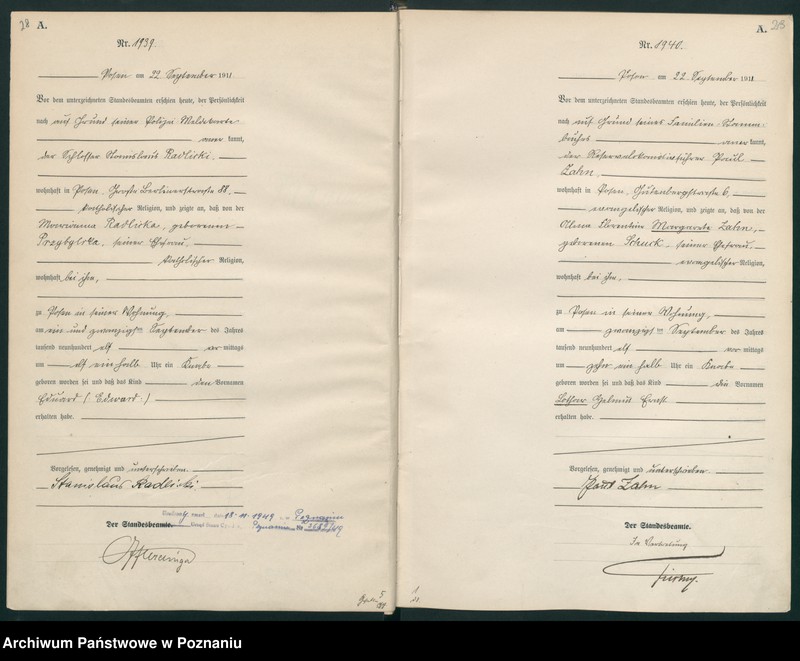 28 A.
Nr. 1939.
Posen am 22. September 1911
Vor dem unterzeichneten Standesbeamten erschien heute, der Persönlichkeit
nach auf Grund seiner Polizei Meldekarte
aner kannt,
der Schlosser Stanislaus Radlicki.
wohnhaft in Posen, Große Berlinerstraße 88.
katholischer Religion, und zeigte an, daß von der
Maryanna Radlicka, geborenen
Przybylska, seiner Ehefrau,
katholischer Religion,
wohnhaft bei ihm,
zu Posen in seiner Wohnung,
am ein und zwanzigsten September des Jahres
tausend neunhundert elf vor mittags
um elf einhalb Uhr ein Knabe
geboren worden sei und daß das Kind den Vornamen
Eduard (: Edward :)
erhalten habe.
Vorgelesen, genehmigt und unterschrieben.
Stanislaus Radlicki
15.11.1949 Poznaniu
Der Standesbeamte.
Nr
A.
Nr. 1940.
Posen am 22. September 1911
Vor dem unterzeichneten Standesbeamten erschien heute, der Persönlichkeit
nach auf Grund seines Familien-Stamm-
buches aner kannt,
der Paul
Zahn,
wohnhaft in Posen, Gutenbergstraße 6,
evangelischer Religion, und zeigte an, daß von der
Alma Florentine Margarete Zahn,
geborenen Schuck, seiner Ehefrau,
evangelischer Religion,
wohnhaft bei ihm,
zu Posen in seiner Wohnung,
am zwanzigsten September des Jahres
tausend neunhundert elf vor mittags
um zehn ein halb Uhr ein Knabe
geboren worden sei und daß das Kind die Vornamen
Lothar Helmut Ernst
erhalten habe.
Vorgelesen, genehmigt und unterschrieben
Paul Zahn
Der Standesbeamte.
In Vertretung
Archiwum Państwowe w Poznaniu